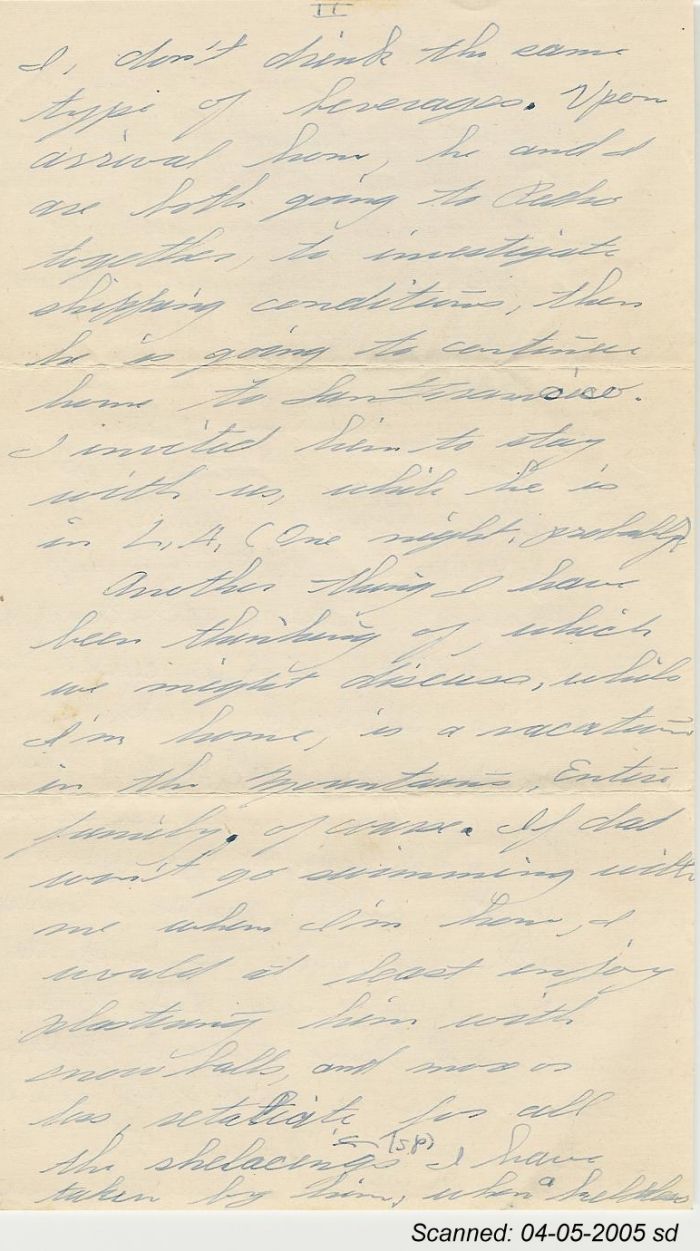 II
I, don't drink the same
type of beverages. Upon
arrival home, he and I
are both going to Pedro
together, to investigate
shipping conditions, then
he is going to continue
home to San Francisco.
I invited him to stay
with us, while he is
in L.A. (One night, probably)
Another thing I have
been thinking of, which
we might discuss, while
I'm home, is a vacation
in the Mountains, Entire
family, of course. If dad
won't go swimming with
me when I'm home, I
would at least enjoy
plastering him with
snow balls, and more or
less, retaliate for all
(sp)
the shelacings I have
taken by him, when a helpless
Scanned: 04-05-2005 sd